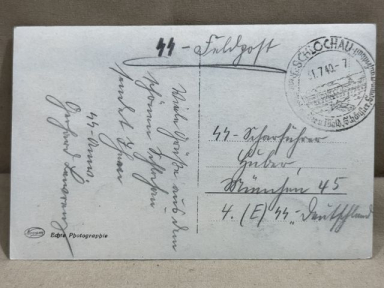 SS-Feldpost
SCHLOCHAU
31.7.40.-7
Viele Grüße aus dem
schönen Schlochau
sendet Ihnen
SS-
Gerhard
SS-Scharführer
Huber,
München 45
4. (E) SS-„Deutschland"
Echte Photographie